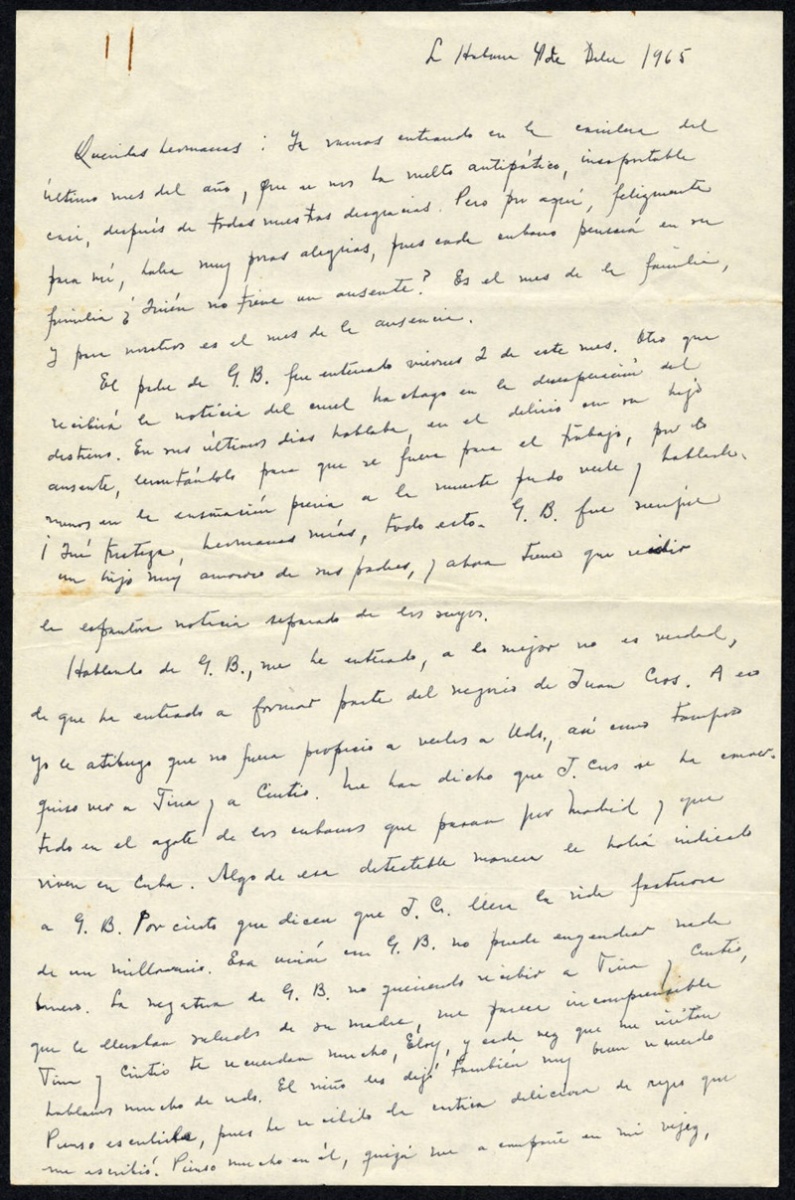 L Habana de Dbre 1965
Queridas hermanas: Ya vamos entrando en la del
último mes del año, que se nos ha vuelto antipático, insoportable
casi, después de todas nuestras desgracias. Pero por aquí, felizmente
para mí, habrá muy pocas alegrías, pues cada cubano pensará en su
familia ¿Quién no tiene un ausente? Es el mes de la familia,
y para nosotros es el mes de la ausencia.
El padre de G. B. fue enterrado viernes 2 de este mes. Otro que
recibirá la noticia del cruel hachazo en la desaparición del
destierro. En sus últimos días hablaba, en el delirio con su hijo
ausente, para que se fuera para el trabajo, por lo
menos en la ensoñación previa a la muerte pudo verle y hablarle.
¡Qué tristeza, hermanas mías, todo esto. G. B. fue siempre
un hijo muy amoroso de sus padres, y ahora tiene que recibir
la espantosa noticia separado de los suyos.
Hablando de G. B., me he enterado, a lo mejor no es verdad,
de que ha entrado a formar parte del negocio de Juan Cros. A eso
yo le atribuyo que no fuera propicio a verles a Uds., así como tampoco
quiso ver a Tina y a Cintio. Me han dicho que J. Crs se ha conver-
tido en el azote de los cubanos que pasan por Madrid y que
viven en Cuba. Algo de esa detestable manera le habrá indicado
a G. B. Por cierto que dicen que J. Cr. lleva la vida fastuosa
de un millonario. Esa unión con G. B. no puede engendrar nada
bueno. La negativa de G. B. no queriendo recibir a Tina y Cintio,
que le llevaban saludos de su madre, me parece incomprensible
Tina y Cintio te recuerdan mucho, Eloy, y cada vez que me invitan
hablamos mucho de uds. El niño les dejó también muy buen recuerdo
Pienso escribirle, pues he recibido la cartica deliciosa de reyes que
me escribió. Pienso mucho en él, quizá me acompañe en mi vejez,